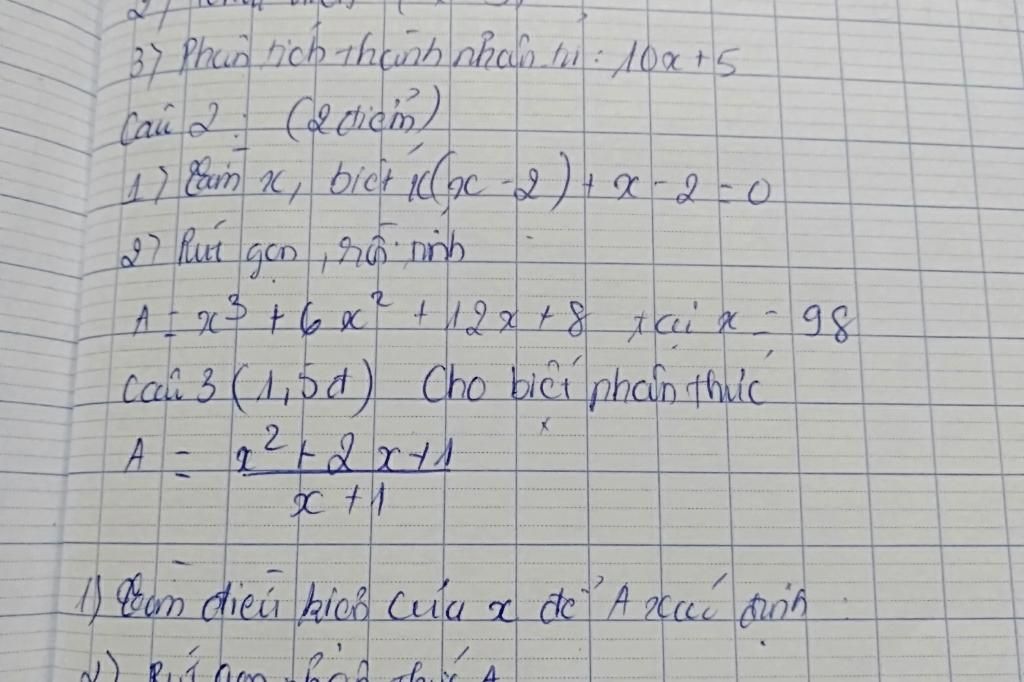 3) Phân tích thành nhân tử: 10x + 5
Câu 2: (2 điểm)
1) Tìm x, biết x(x - 2) + x - 2 = 0
2) Rút gọn, rồi tính
A = x³ + 6x² + 12x + 8 tại x = 98
Câu 3 (1,5đ) Cho biết phân thức
A = \frac{x² + 2x + 1}{x + 1}
1) Tìm điều kiện của x để A xác định
2) Rút gọn phân thức A